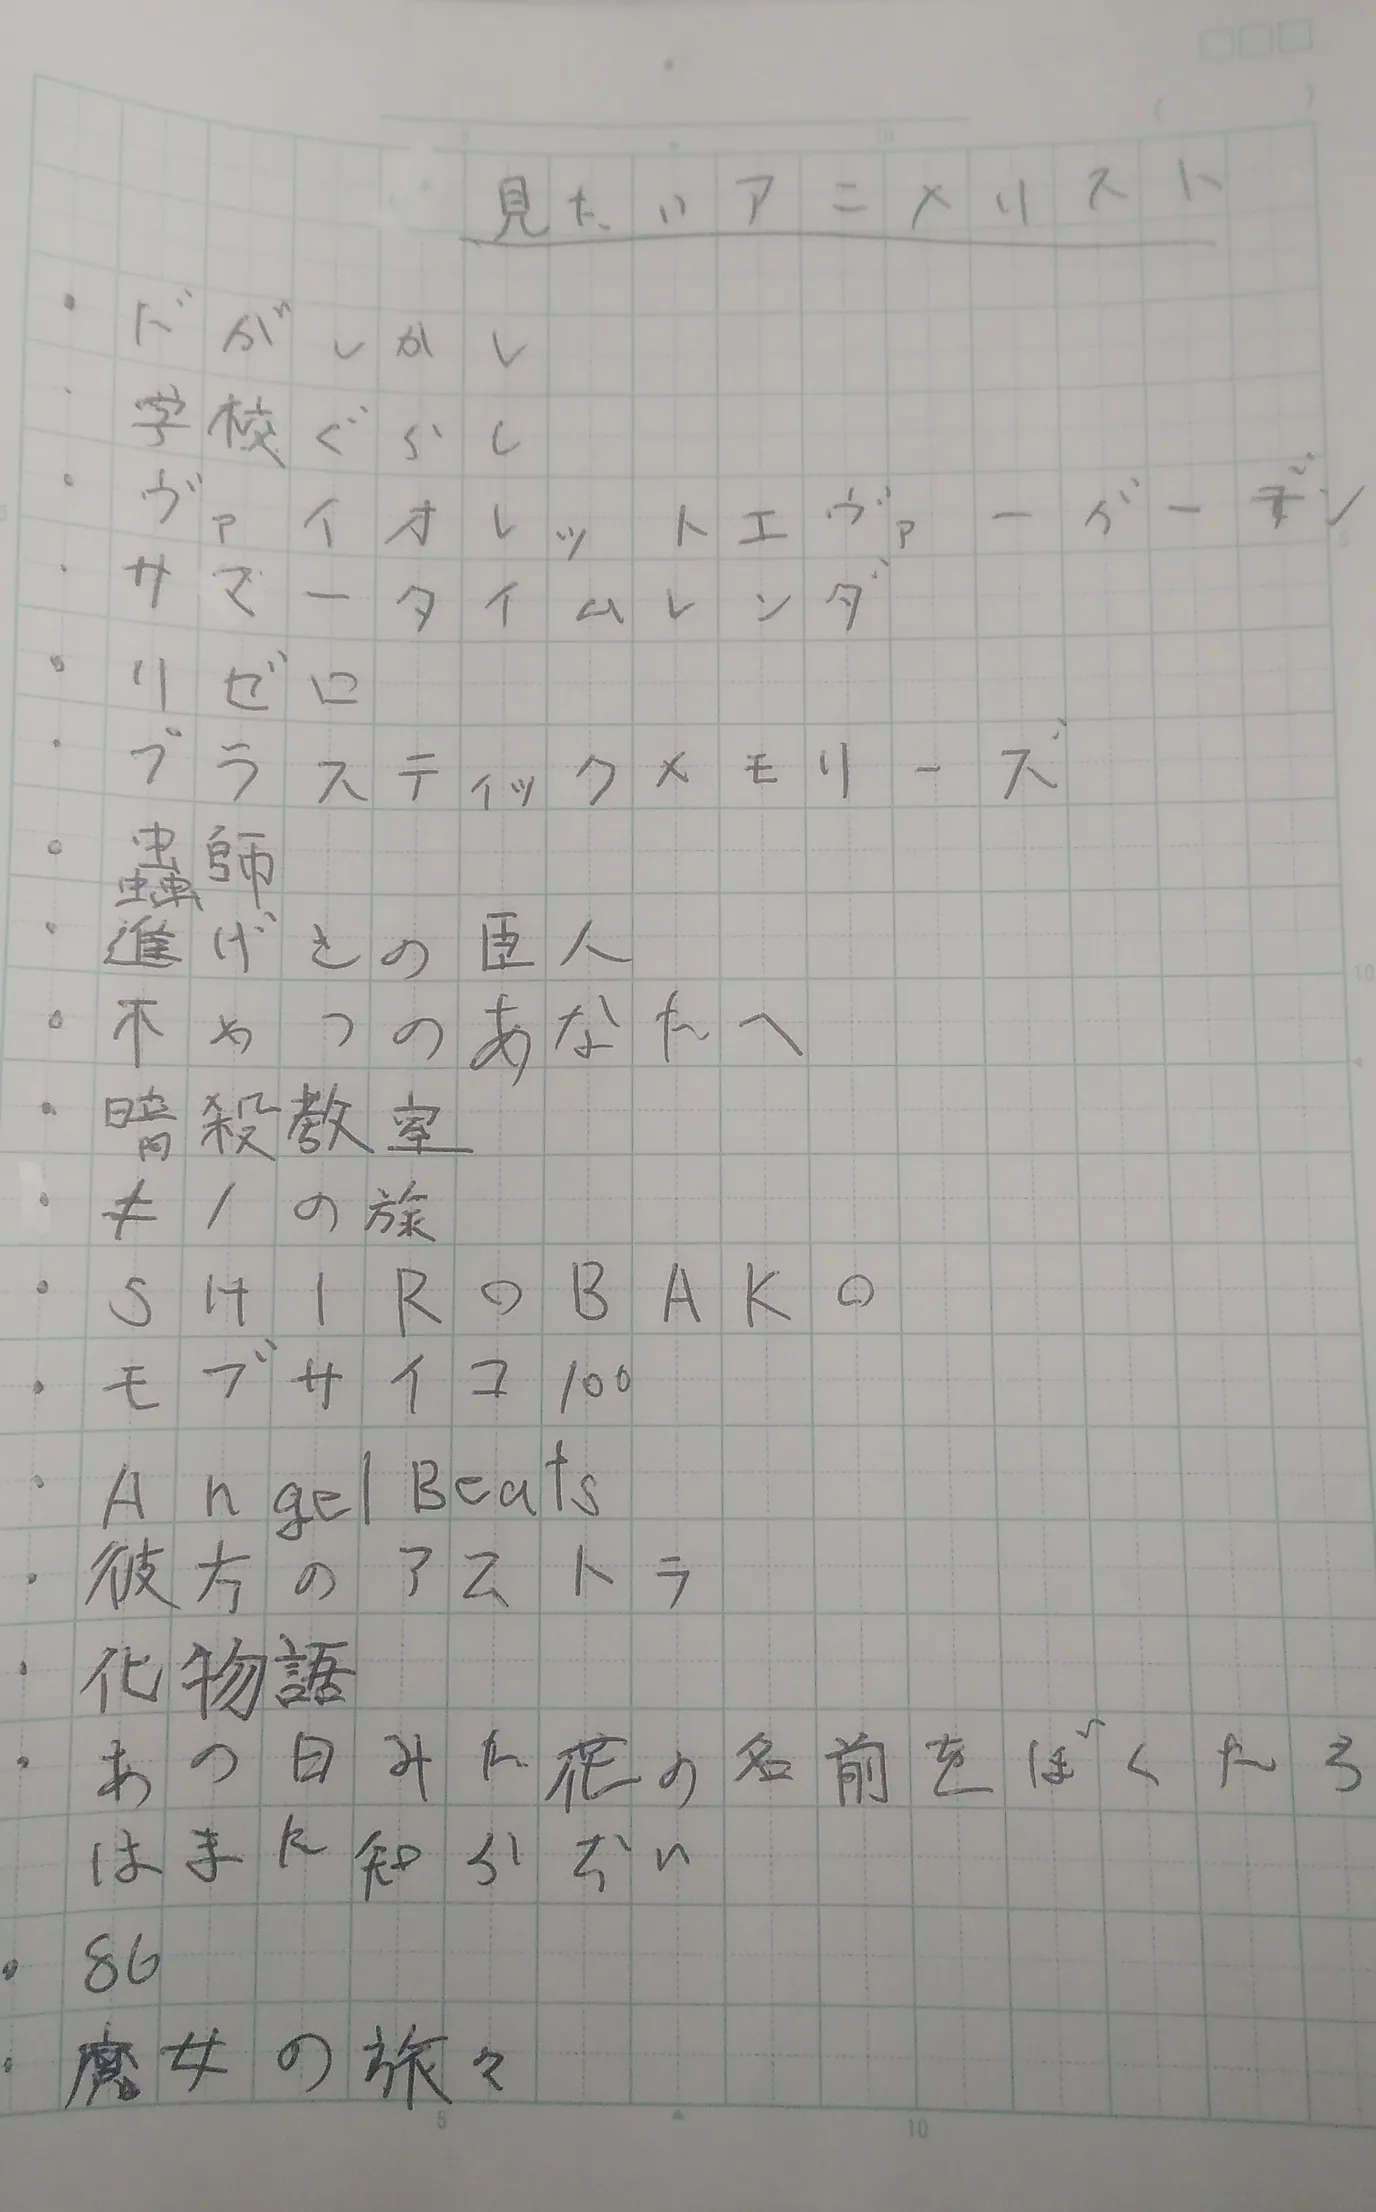 見たいアニメリスト
・だがしかし
・学校ぐらし
・ヴァイオレットエヴァーガーデン
・サマータイムレンダ
・リゼロ
・プラスティックメモリーズ
・蟲師
・進げきの巨人
・不めつのあなたへ
・暗殺教室
・キノの旅
・SHIROBAKO
・モブサイコ100
・Angel Beats
・彼方のアストラ
・化物語
・あの日みた花の名前をぼくたち
はまだ知らない
・86
・魔女の旅々
5
10